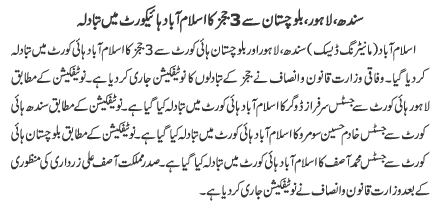 سندھ، لاہور، بلوچستان سے 3 ججز کا اسلام آباد ہائیکورٹ میں تبادلہ
اسلام آباد (مانیٹرنگ ڈیسک) سندھ، لاہور اور بلوچستان ہائی کورٹ سے 3 ججز کا اسلام آباد ہائی کورٹ میں تبادلہ
کر دیا گیا۔ وفاقی وزارت قانون و انصاف نے ججز کے تبادلوں کا نوٹیفکیشن جاری کر دیا ہے۔ نوٹیفکیشن کے مطابق
لاہور ہائی کورٹ سے جسٹس سرفراز ڈوگر کا اسلام آباد ہائی کورٹ میں تبادلہ کیا گیا ہے۔ نوٹیفکیشن کے مطابق سندھ ہائی
کورٹ سے جسٹس خادم حسین سومرو کا اسلام آباد ہائی کورٹ میں تبادلہ کیا گیا ہے۔ نوٹیفکیشن کے مطابق بلوچستان ہائی
کورٹ سے جسٹس محمد آصف کا اسلام آباد ہائی کورٹ میں تبادلہ کیا گیا ہے۔ صدر مملکت آصف علی زرداری کی منظوری
کے بعد وزارت قانون و انصاف نے نوٹیفکیشن جاری کر دیا ہے۔